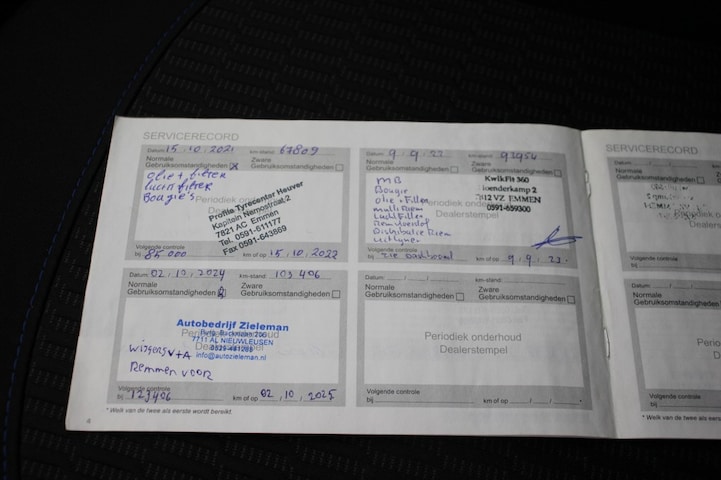 SERVICERECORD
Datum: 15.10.2021 km-stand: 67809
Normale Gebruiksomstandigheden
Zware Gebruiksomstandigheden
olie + filter
lucht filter
Bougie's
Periodiek onderhoud
Dealerstempel
Profile Tyrecenter Heuver
Kapitein Nemostraat 2
7821 AC Emmen
Tel. 0591-611177
Fax 0591-643869
Volgende controle
bij 85.000 km of op 15.10.2022
Datum: 9.9.22 km-stand: 93954
Normale Gebruiksomstandigheden
Zware Gebruiksomstandigheden
MB
Bougie
olie + Filter
multi Riem
Lucht Filter
Remvloeistof
Distributie Riem
KwikFit 360
EMMEN
0591-659300
Volgende controle
bij zie Dashboard km of op 9.9.23
Datum: 02.10.2024 km-stand: 103406
Normale Gebruiksomstandigheden
Zware Gebruiksomstandigheden
Periodiek onderhoud
Dealerstempel
Autobedrijf Zieleman
7711 AL NIEUWLEUSEN
info@autozieleman.nl
wissers V+A
Remmen voor
Volgende controle
bij 123406 km of op 02.10.2025
Datum: km-stand:
Normale Gebruiksomstandigheden
Zware Gebruiksomstandigheden
Periodiek onderhoud
Dealerstempel
Volgende controle
bij km of op
* Welk van de twee als eerste wordt bereikt.
4
SERVICERECORD
Datum:
Normale
Gebruiksomstandigheden
Volgende controle
bij
Datum:
Normale
Gebruiksomstandigheden
Volgende controle
bij
* Welk van de twee als eerste